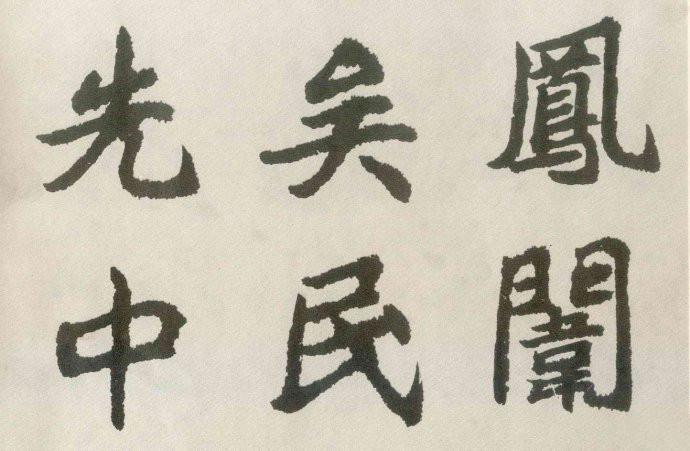 鳳闈
矣民
先中